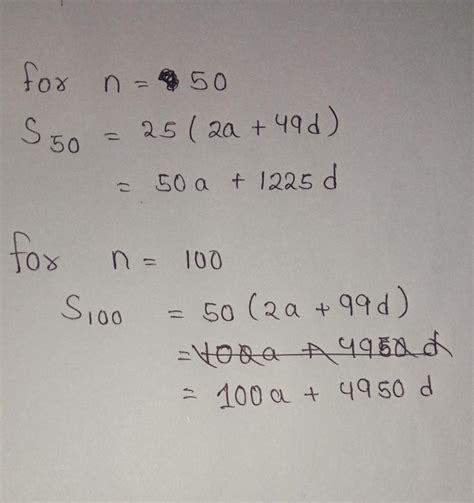 for n = 50
S50 = 25(2a + 49d)
= 50a + 1225d
for n = 100
S100 = 50(2a + 99d)
= 100a + 4950 d
= 100a + 4950 d